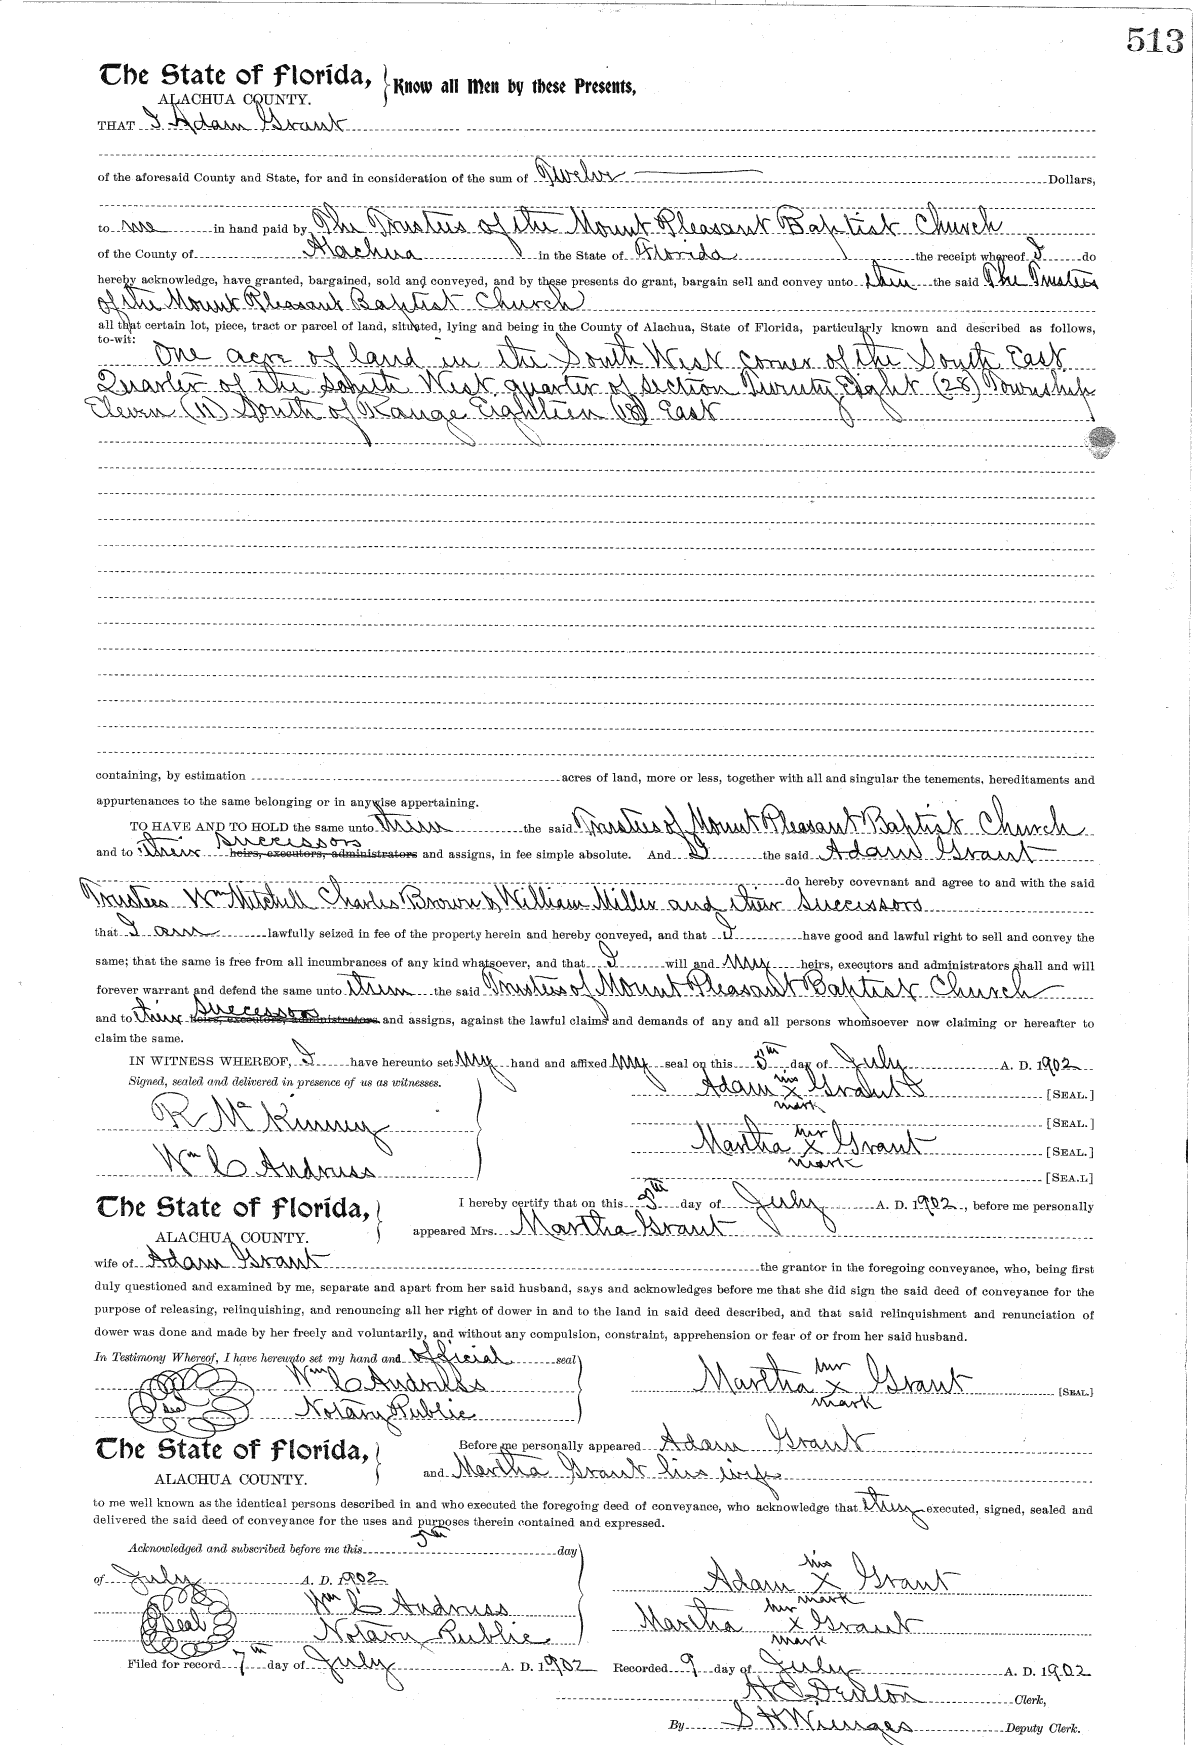 513
The State of Florida, Know all Men by these Presents,
ALACHUA COUNTY.
THAT I Adam Grant
of the aforesaid County and State, for and in consideration of the sum of Twelve Dollars,
to me in hand paid by The Trustees of the Mount Pleasant Baptist Church
of the County of Alachua in the State of Florida the receipt whereof I do
hereby acknowledge, have granted, bargained, sold and conveyed, and by these presents do grant, bargain sell and convey unto them the said The Trustees
of the Mount Pleasant Baptist Church
all that certain lot, piece, tract or parcel of land, situated, lying and being in the County of Alachua, State of Florida, particularly known and described as follows,
to-wit:
One acre of land in the South West corner of the South East
Quarter of the South West quarter of section Twenty Eight (28) Township
Eleven (11) South of Range Eighteen (18) East
containing, by estimation acres of land, more or less, together with all and singular the tenements, hereditaments and
appurtenances to the same belonging or in anywise appertaining.
TO HAVE AND TO HOLD the same unto them the said Trustees of Mount Pleasant Baptist Church
successors
and to their heirs, executors, administrators and assigns, in fee simple absolute. And I the said Adam Grant
do hereby covevnant and agree to and with the said
Trustees Wm Mitchell Charles Brown & William Miller and their successors
that I am lawfully seized in fee of the property herein and hereby conveyed, and that I have good and lawful right to sell and convey the
same; that the same is free from all incumbrances of any kind whatsoever, and that I will and my heirs, executors and administrators shall and will
forever warrant and defend the same unto them the said Trustees of Mount Pleasant Baptist Church
successors
and to their heirs, executors, administrators and assigns, against the lawful claims and demands of any and all persons whomsoever now claiming or hereafter to
claim the same.
IN WITNESS WHEREOF, I have hereunto set my hand and affixed my seal on this 5th day of July A. D. 1902
Signed, sealed and delivered in presence of us as witnesses. Adam his x mark Grant [SEAL.]
R McKinney [SEAL.]
Martha her x mark Grant [SEAL.]
Wm C Andruss [SEA.L]
The State of Florida, I hereby certify that on this 5th day of July A. D. 1902, before me personally
ALACHUA COUNTY. appeared Mrs. Martha Grant
wife of Adam Grant the grantor in the foregoing conveyance, who, being first
duly questioned and examined by me, separate and apart from her said husband, says and acknowledges before me that she did sign the said deed of conveyance for the
purpose of releasing, relinquishing, and renouncing all her right of dower in and to the land in said deed described, and that said relinquishment and renunciation of
dower was done and made by her freely and voluntarily, and without any compulsion, constraint, apprehension or fear of or from her said husband.
In Testimony Whereof, I have hereunto set my hand and official seal
Wm C Andruss Martha her x mark Grant [SEAL.]
Seal Notary Public
The State of Florida, Before me personally appeared Adam Grant
ALACHUA COUNTY. and Martha Grant his wife
to me well known as the identical persons described in and who executed the foregoing deed of conveyance, who acknowledge that they executed, signed, sealed and
delivered the said deed of conveyance for the uses and purposes therein contained and expressed.
Acknowledged and subscribed before me this 5th day
of July A. D. 1902 Adam his x mark Grant
Wm C Andruss
Seal Martha her x mark Grant
Notary Public
Filed for record 7th day of July A. D. 1902 Recorded 9 day of July A. D. 1902
H C Denton Clerk,
By S H Wienges Deputy Clerk.